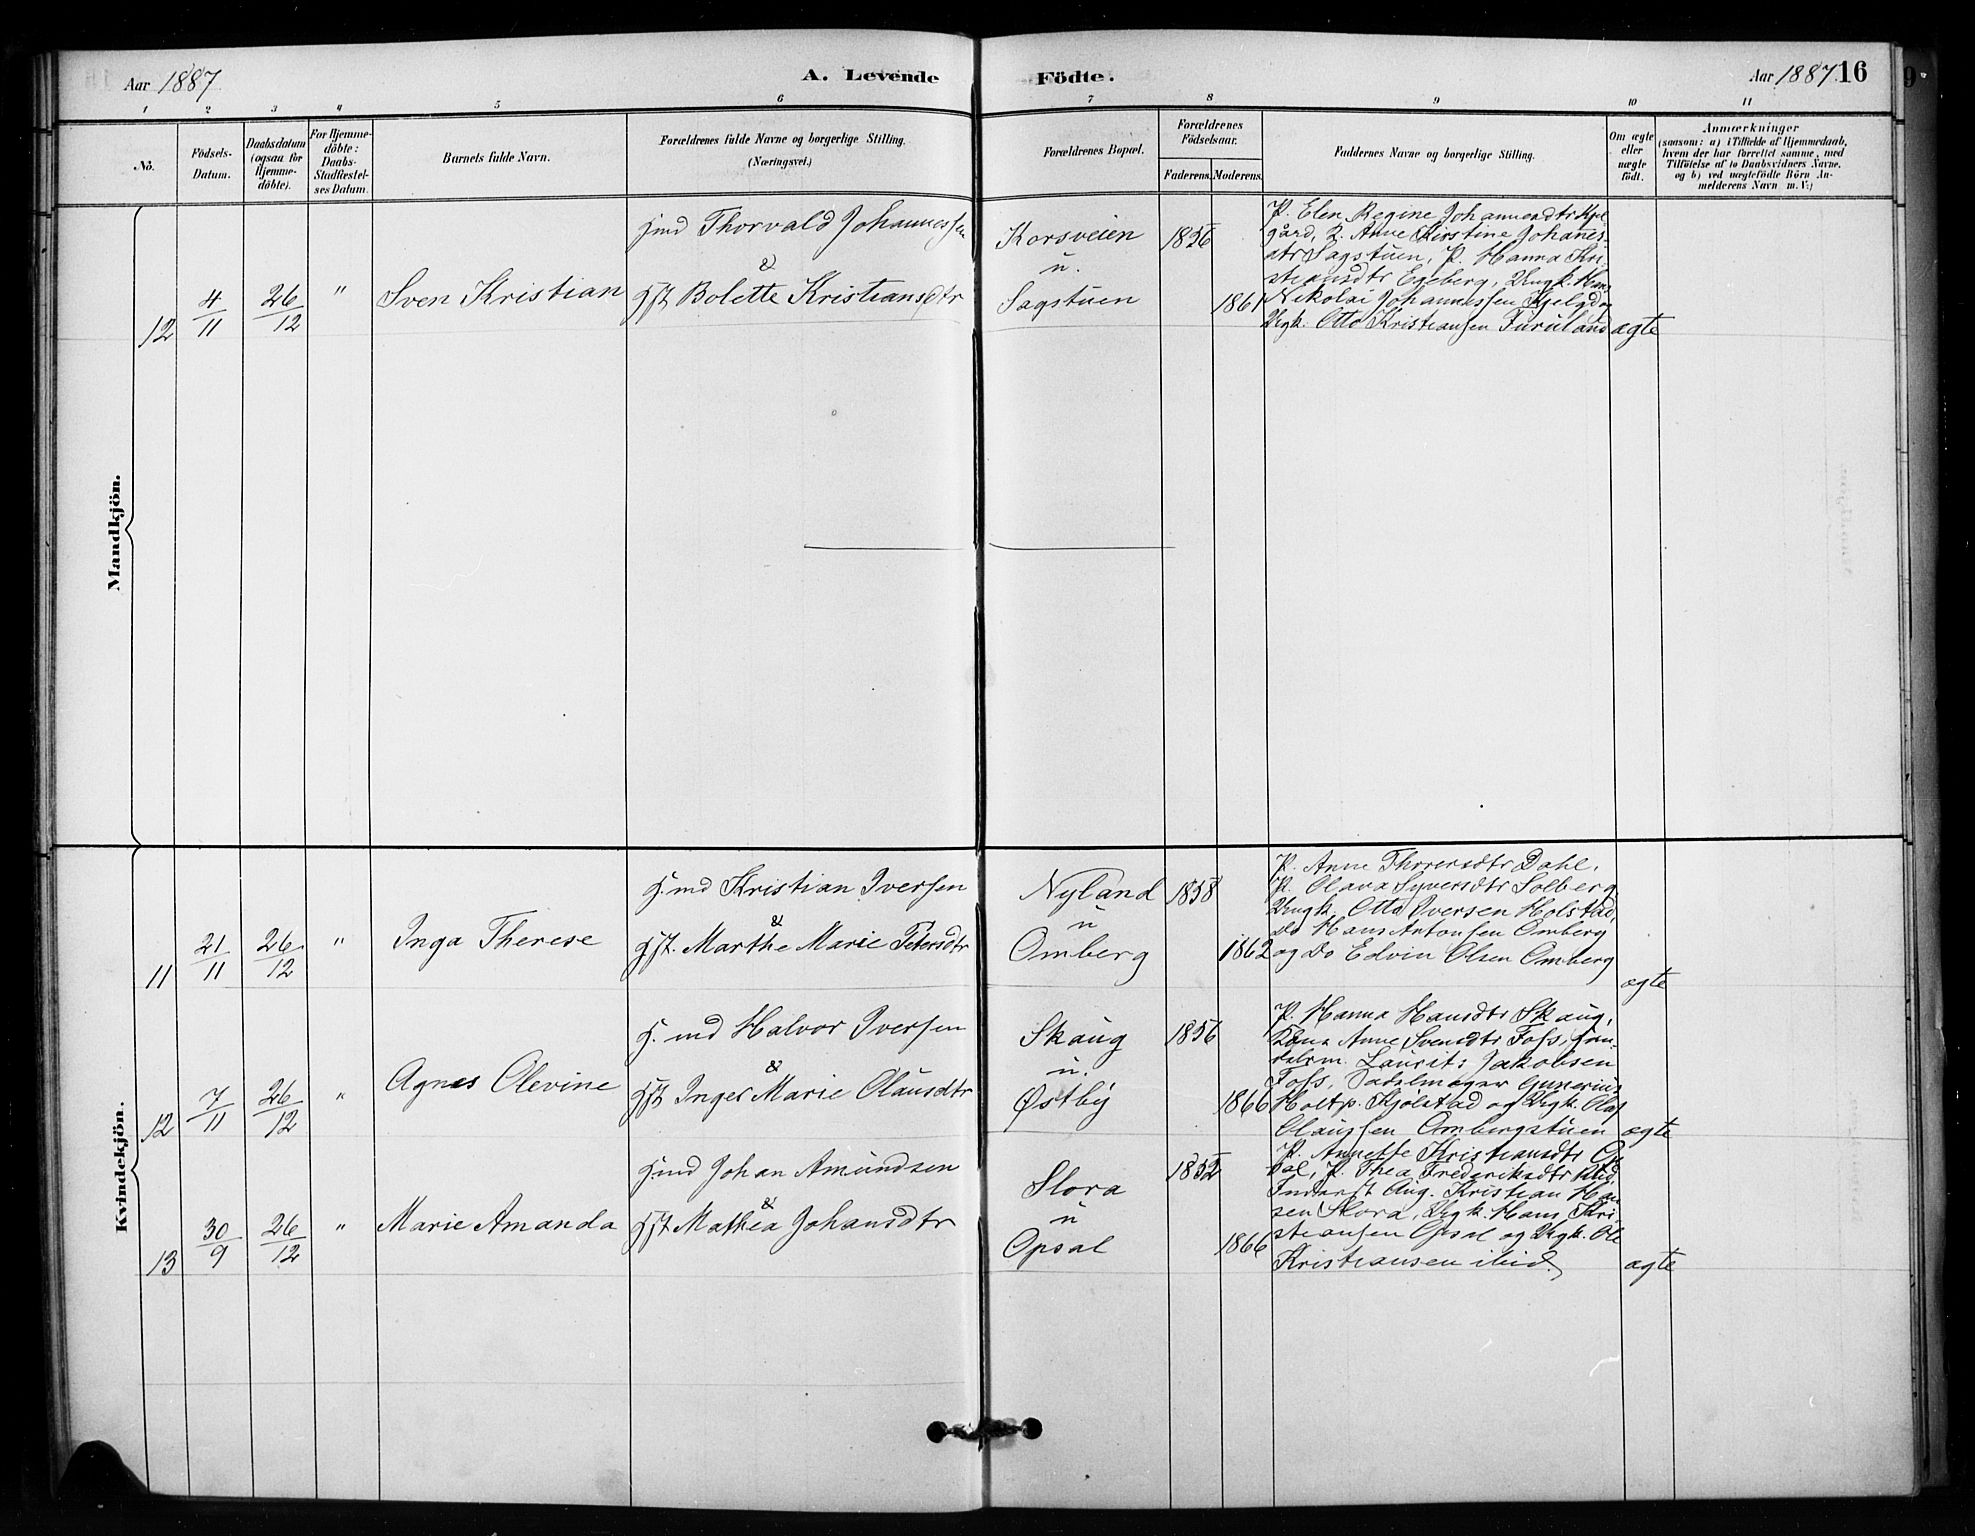 Aar 1887.
A. Levende
Födte.
Aar 1887. 16
1 2 3 4 5 6 7 8 9 10 11
No.
Födsels-
Datum.
Daabsdatum
(ogsaa for
Hjemme-
döbte).
For Hjemme-
döbte:
Daabs-
Stadfæstel-
ses Datum.
Barnets fulde Navn.
Forældrenes fulde Navne og borgerlige Stilling.
(Næringsvei.)
Forældrenes Bopæl.
Forældrenes
Födselsaar.
Faderens. Moderens.
Faddernes Navne og borgerlige Stilling.
Om ægte
eller
uægte
födt.
Anmærkninger
(saasom: a) i Tilfælde af Hjemmedaab,
hvem der har forrettet samme, med
Tilföielse af to Daabsvidners Navne,
og b) ved uægtefödte Börn An-
melderens Navn m. V.)
Mandkjön.
12
4/11
26/12
"
Sven Kristian
Gmd Thorvald Johannessen
&
Gjst Bolette Kristiansdtr
Korsveien
u.
Sagstuen
1856
1861
P. Elen Regine Johannesdtr Kjel
gård, K. Anne Kirstine Johannes-
dtr Sagstuen, P. Hanna Kri
stiansdtr Egeberg, Ungk. Hans
Nikolai Johannessen Kjelgd og
Ungk. Otto Kristiansen Furuland
ægte
Kvindekjön.
11
21/11
26/12
"
Inga Therese
G. md Kristian Iversen
&
Gjst. Marthe Marie Petersdtr
Nyland
u
Omberg
1858
1862
P. Anne Thorersdtr Dahl,
P. Olava Syversdtr Solberg
Ungk. Otto Iversen Holstad,
do Hans Antonsen Omberg
og do Edvin Olsen Omberg
ægte
12
7/11
26/12
"
Agnes Olevine
G. md Halvor Iversen
&
Gjst Inger Marie Olausdtr
Skaug
u.
Østby
1856
1866
P. Hanna Hansdtr Skaug,
Kona Anne Svensdtr Foss,
Laurits Jakobsen
Foss, Sadelmager Gunerius
Holtp. Kjølstad og Ungk. Olaf
Olaussen Ombergstuen
ægte
13
30/9
26/12
"
Marie Amanda
Gmd Johan Amundsen
&
Gjst Mathea Johansdtr
Slora
u
Opsal
1852
1866
P. Annette Kristiansdtr Op
sal, P. Thea Frederiksdtr
Inderst Aug. Kristian Han
sen Slora, Ungk. Hans Kri-
stiansen Opsal og Ungk. Ole
Kristiansen ibid.
ægte